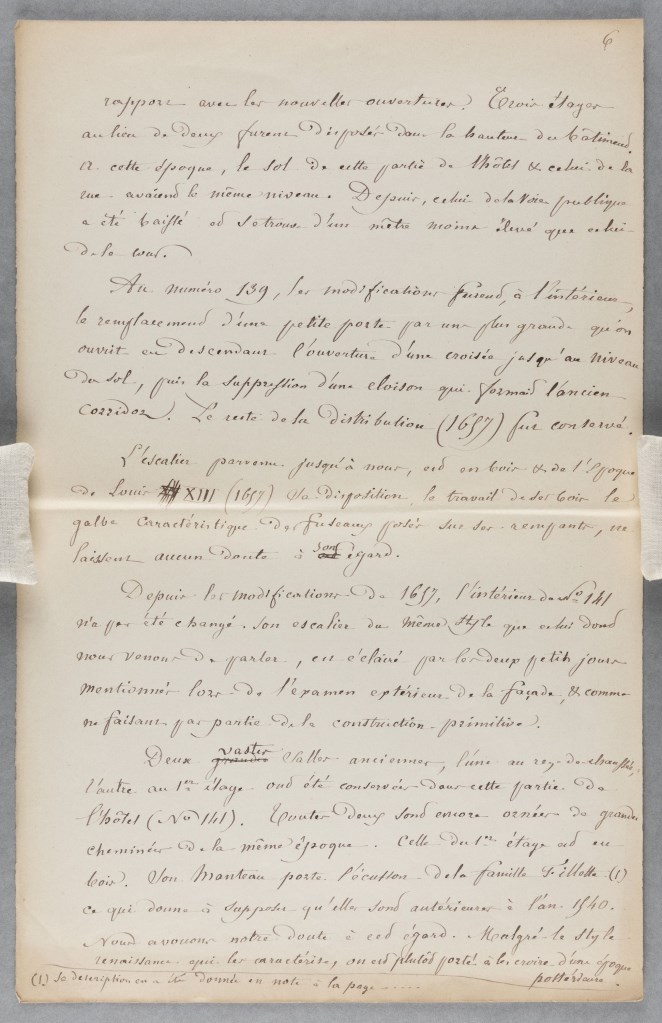 6
rapport avec les nouvelles ouvertures. Trois étages
au lieu de deux furent disposés dans la hauteur du bâtiment.
A cette époque, le sol de cette partie de l'hôtel & celui de la
rue avaient le même niveau. Depuis, celui de la Voie publique
a été baissé et se trouve d'un mètre moins élevé que celui
de la cour.
Au numéro 139, les modifications furent, à l'intérieur,
le remplacement d'une petite porte par une plus grande qu'on
ouvrit en descendant l'ouverture d'une croisée jusqu'au niveau
du sol, puis la suppression d'une cloison qui formait l'ancien
corridor. Le reste de la distribution (1657) fut conservé.
L'escalier parvenu jusqu'à nous, est en bois & de l'Epoque
de Louis XIII (1657) Sa disposition, le travail de ses bois le
galbe caractéristique des fuseaux posés sur ses rempants, ne
laissent aucun doute à son égard.
Depuis les modifications de 1657, l'intérieur du No 141
n'a pas été changé. Son escalier du même style que celui dont
nous venons de parler, est éclairé par les deux petits jours
mentionnés lors de l'examen extérieur de la façade, & comme
ne faisant pas partie de la construction primitive.
Deux grandes vastes Salles anciennes, l'une au rez-de-chaussée,
l'autre au 1er étage ont été conservées dans cette partie de
l'hôtel (No 141). Toutes deux sont encore ornées de grandes
cheminées de la même époque. Celle du 1er étage est en
bois. Son Manteau porte l'écusson de la famille Fillette (1)
ce qui donne à supposer qu'elles sont antérieures à l'an 1540.
Nous avouons notre doute à cet égard. Malgré le style
renaissance qui les caractérise, on est plutôt porté à les croire d'une époque
postérieure.
(1) Sa description en a été donnée en note à la page .....